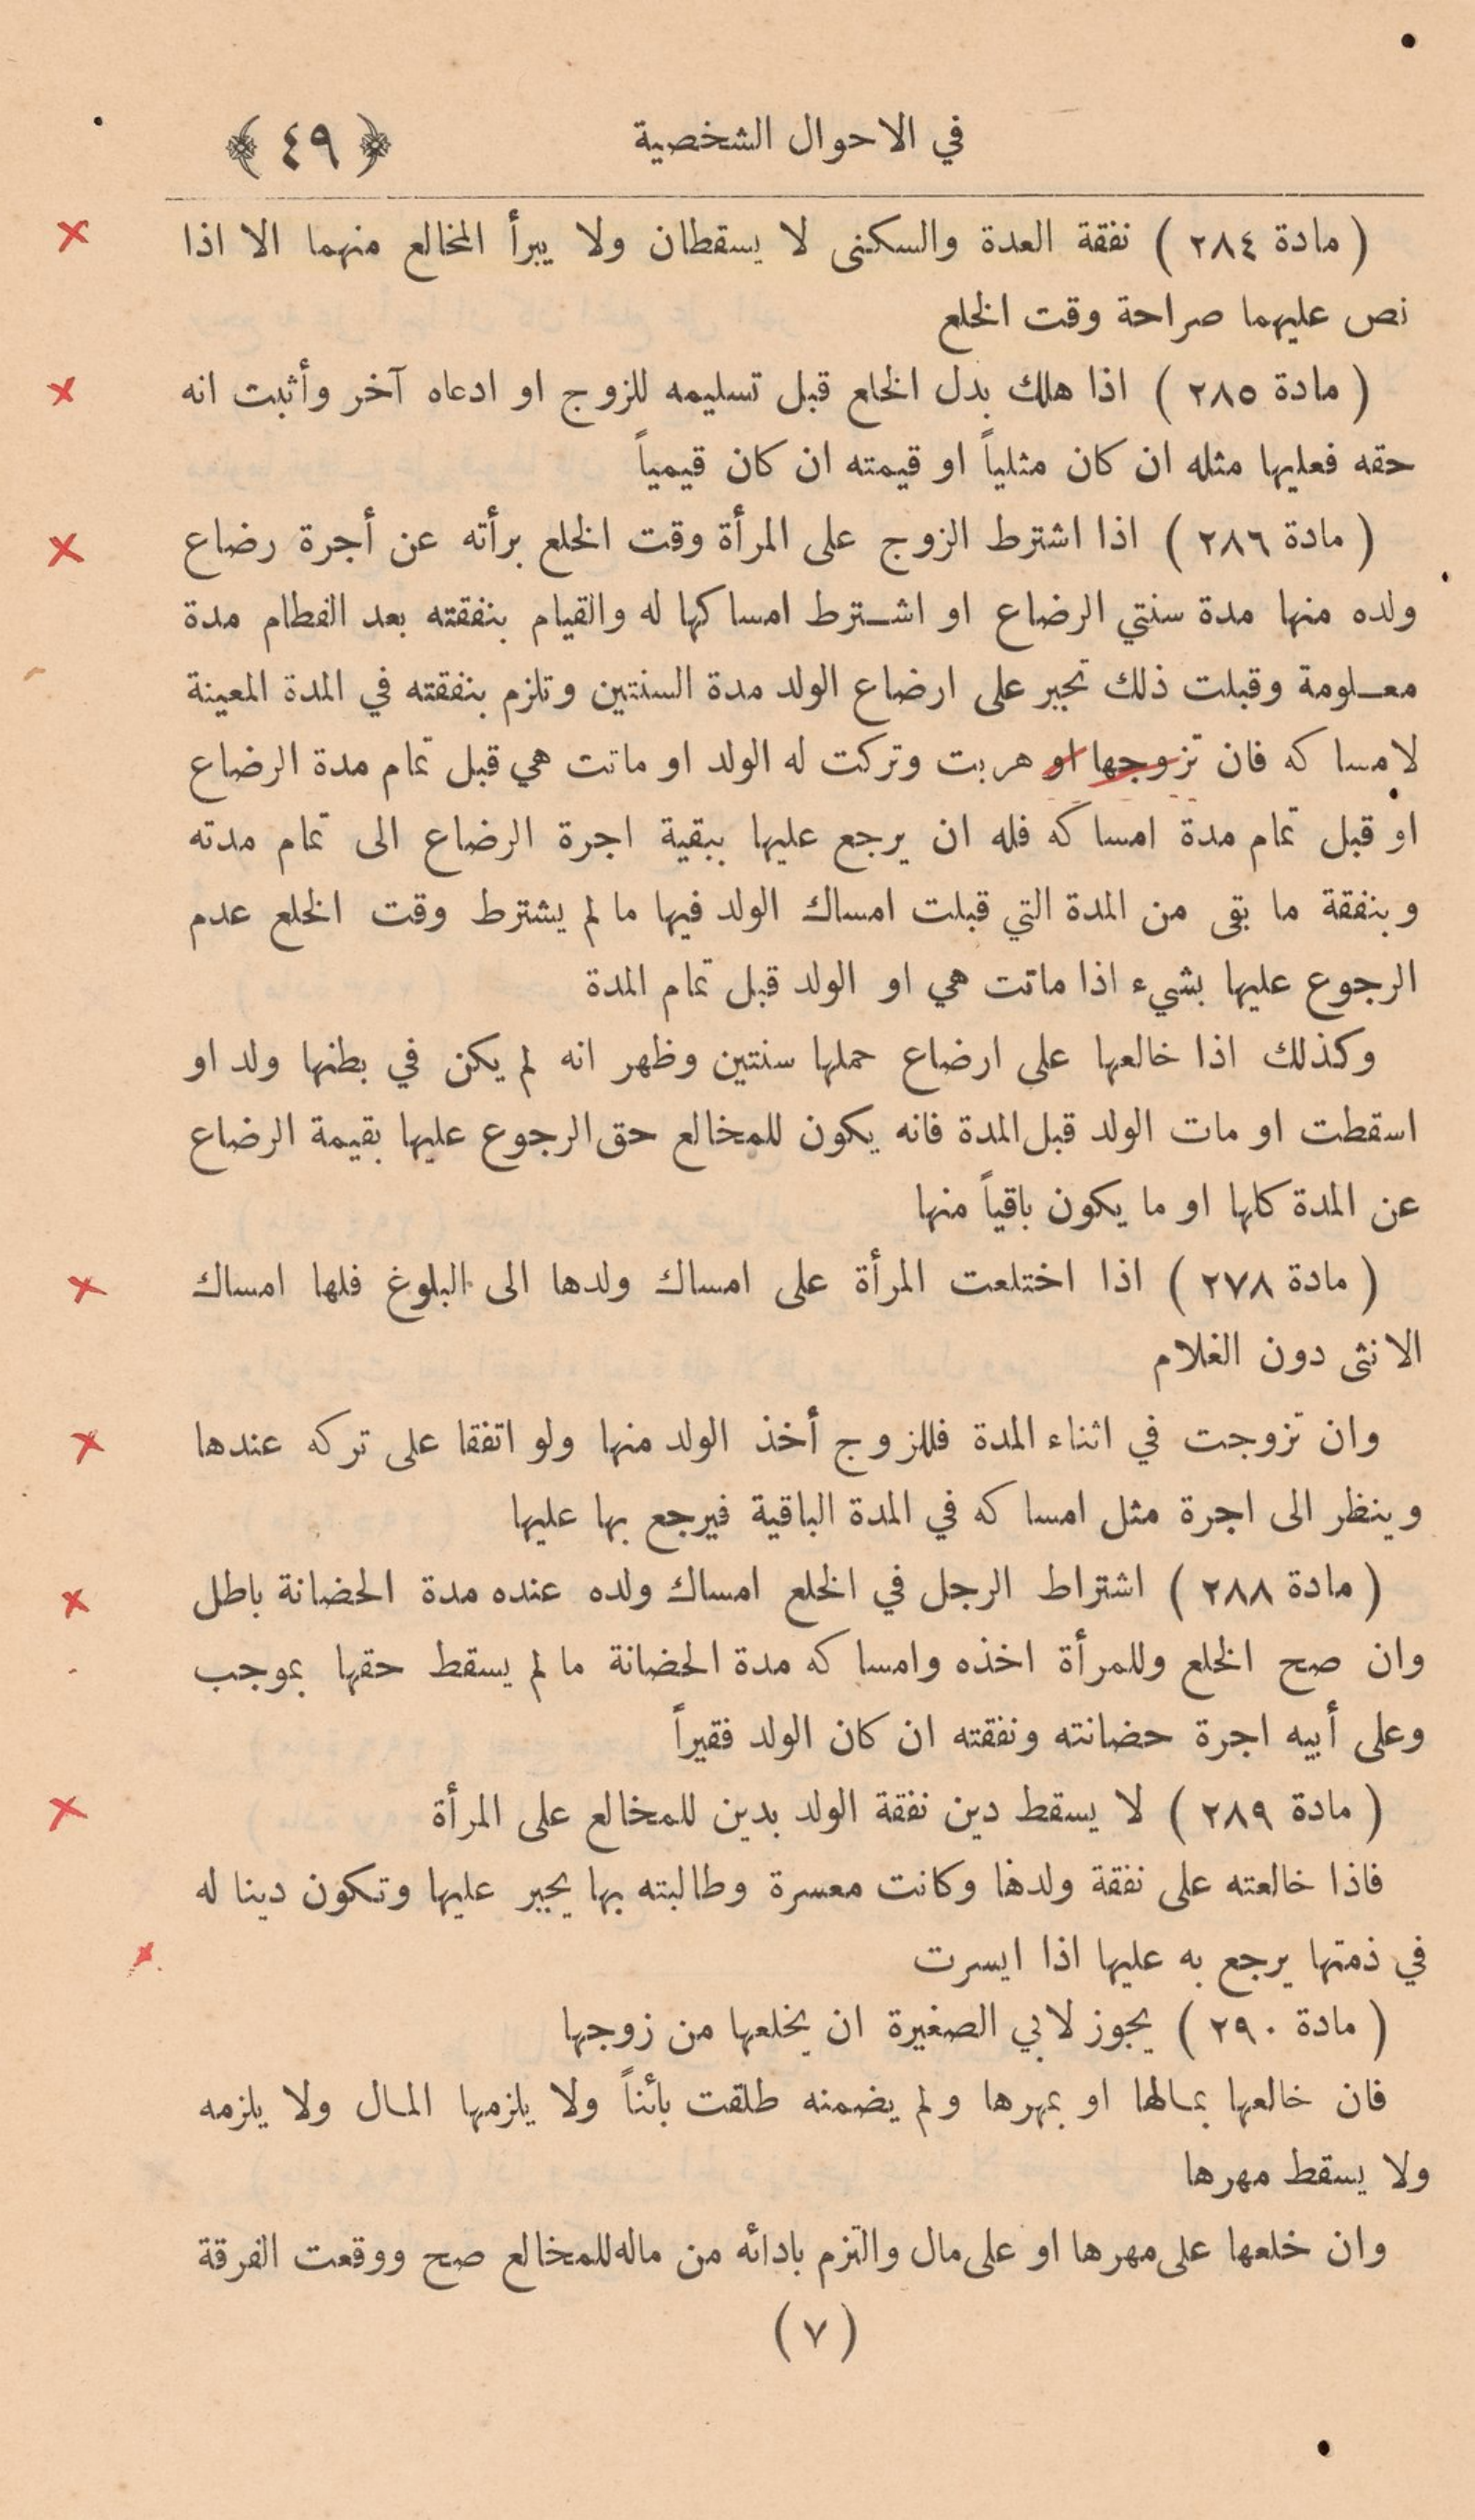 في الاحوال الشخصية ﴿ ٤٩ ﴾
( مادة ٢٨٤ ) نفقة العدة والسكنى لا يسقطان ولا يبرأ المخالع منهما الا اذا
نص عليهما صراحة وقت الخلع
( مادة ٢٨٥ ) اذا هلك بدل الخلع قبل تسليمه للزوج او ادعاه آخر وأثبت انه
حقه فعليها مثله ان كان مثلياً او قيمته ان كان قيمياً
( مادة ٢٨٦ ) اذا اشترط الزوج على المرأة وقت الخلع برأته عن أجرة رضاع
ولده منها مدة سنتي الرضاع او اشترط امساكها له والقيام بنفقته بعد الفطام مدة
معلومة وقبلت ذلك تجبر على ارضاع الولد مدة السنتين وتلزم بنفقته في المدة المعينة
لامساكه فان تزوجها او هربت وتركت له الولد او ماتت هي قبل تمام مدة الرضاع
او قبل تمام مدة امساكه فله ان يرجع عليها ببقية اجرة الرضاع الى تمام مدته
وبنفقة ما بقى من المدة التي قبلت امساك الولد فيها ما لم يشترط وقت الخلع عدم
الرجوع عليها بشيء اذا ماتت هي او الولد قبل تمام المدة
وكذلك اذا خالعها على ارضاع حملها سنتين وظهر انه لم يكن في بطنها ولد او
اسقطت او مات الولد قبل المدة فانه يكون للمخالع حق الرجوع عليها بقيمة الرضاع
عن المدة كلها او ما يكون باقياً منها
( مادة ٢٧٨ ) اذا اختلعت المرأة على امساك ولدها الى البلوغ فلها امساك
الانثى دون الغلام
وان تزوجت في اثناء المدة فللزوج أخذ الولد منها ولو اتفقا على تركه عندها
وينظر الى اجرة مثل امساكه في المدة الباقية فيرجع بها عليها
( مادة ٢٨٨ ) اشتراط الرجل في الخلع امساك ولده عنده مدة الحضانة باطل
وان صح الخلع وللمرأة اخذه وامساكه مدة الحضانة ما لم يسقط حقها بموجب
وعلى أبيه اجرة حضانته ونفقته ان كان الولد فقيراً
( مادة ٢٨٩ ) لا يسقط دين نفقة الولد بدين للمخالع على المرأة
فاذا خالعته على نفقة ولدها وكانت معسرة وطالبته بها يجبر عليها وتكون دينا له
في ذمتها يرجع به عليها اذا ايسرت
( مادة ٢٩٠ ) يجوز لابي الصغيرة ان يخلعها من زوجها
فان خالعها بمالها او بمهرها ولم يضمنه طلقت بائناً ولا يلزمها المال ولا يلزمه
ولا يسقط مهرها
وان خلعها على مهرها او على مال والتزم بادائه من ماله للمخالع صح ووقعت الفرقة
( ٧ )